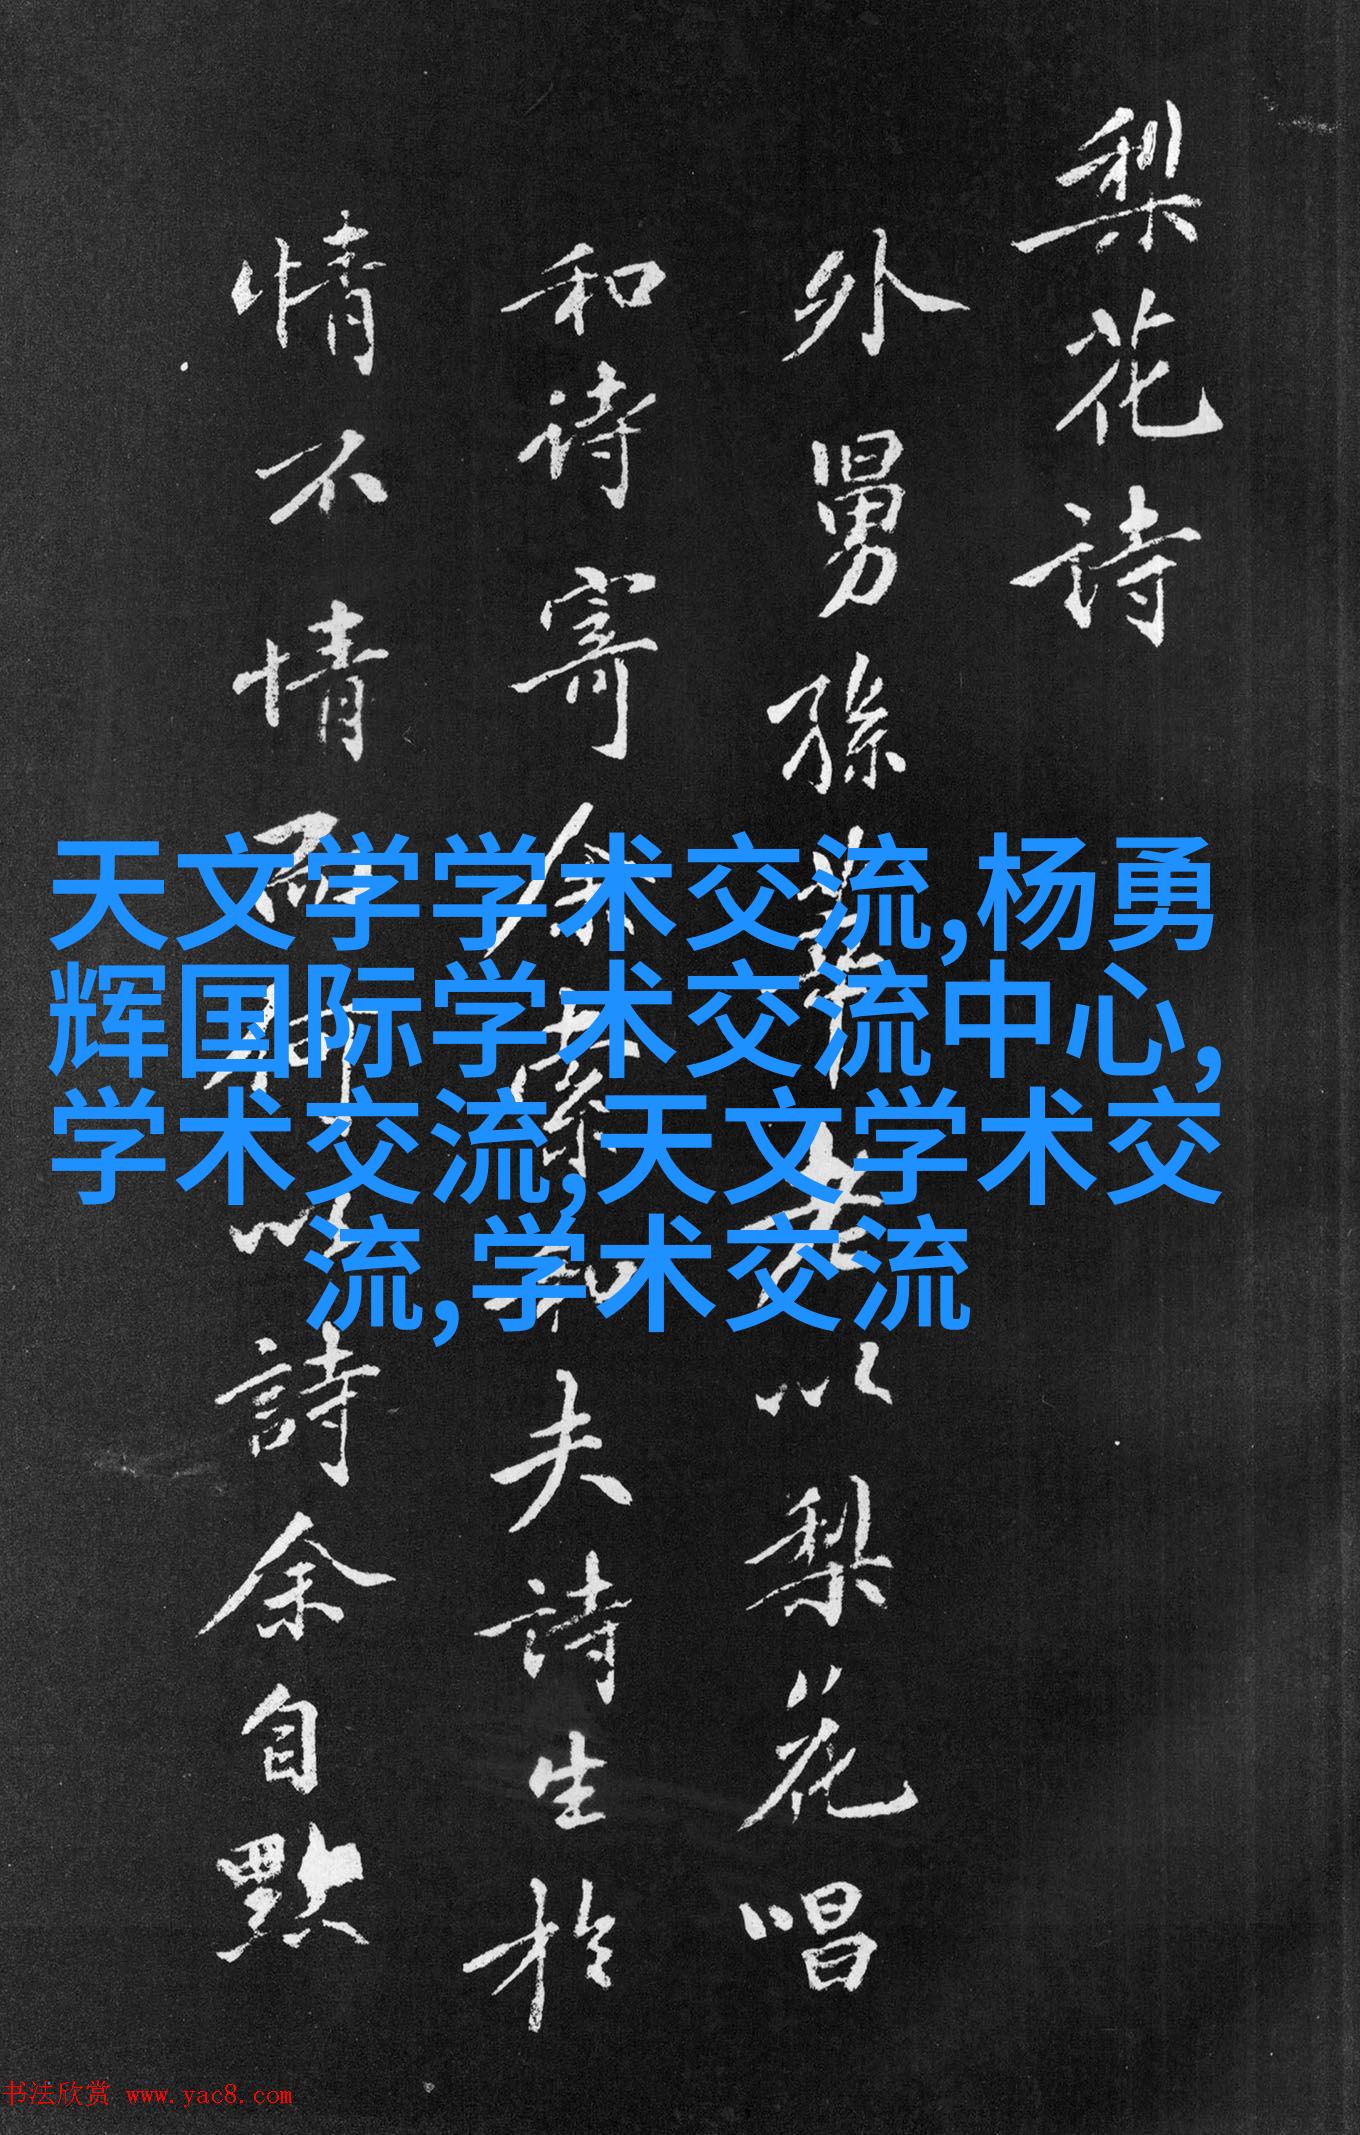 梨花诗
外舅孫莘老以梨花唱
和诗寄余余素和夫詩生於
情不情而何以詩余自默
天文学学术交流,杨勇
辉国际学术交流中心,
学术交流,天文学术交
流,学术交流
书法欣赏 www.yac8.com